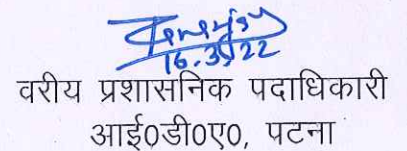 16.3.22
वरीय प्रशासनिक पदाधिकारी
आई0डी0ए0, पटना